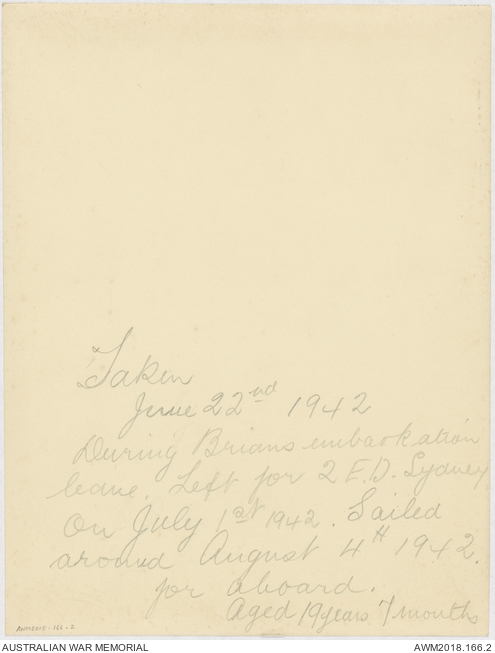 Taken
June 22nd 1942
During Brians embarkation
leave. Left for 2 E.D. Sydney
on July 1st 1942. Sailed
around August 4th 1942.
for aboard.
Aged 19 years 7 months
AWM2018.166.2
AUSTRALIAN WAR MEMORIAL
AWM2018.166.2